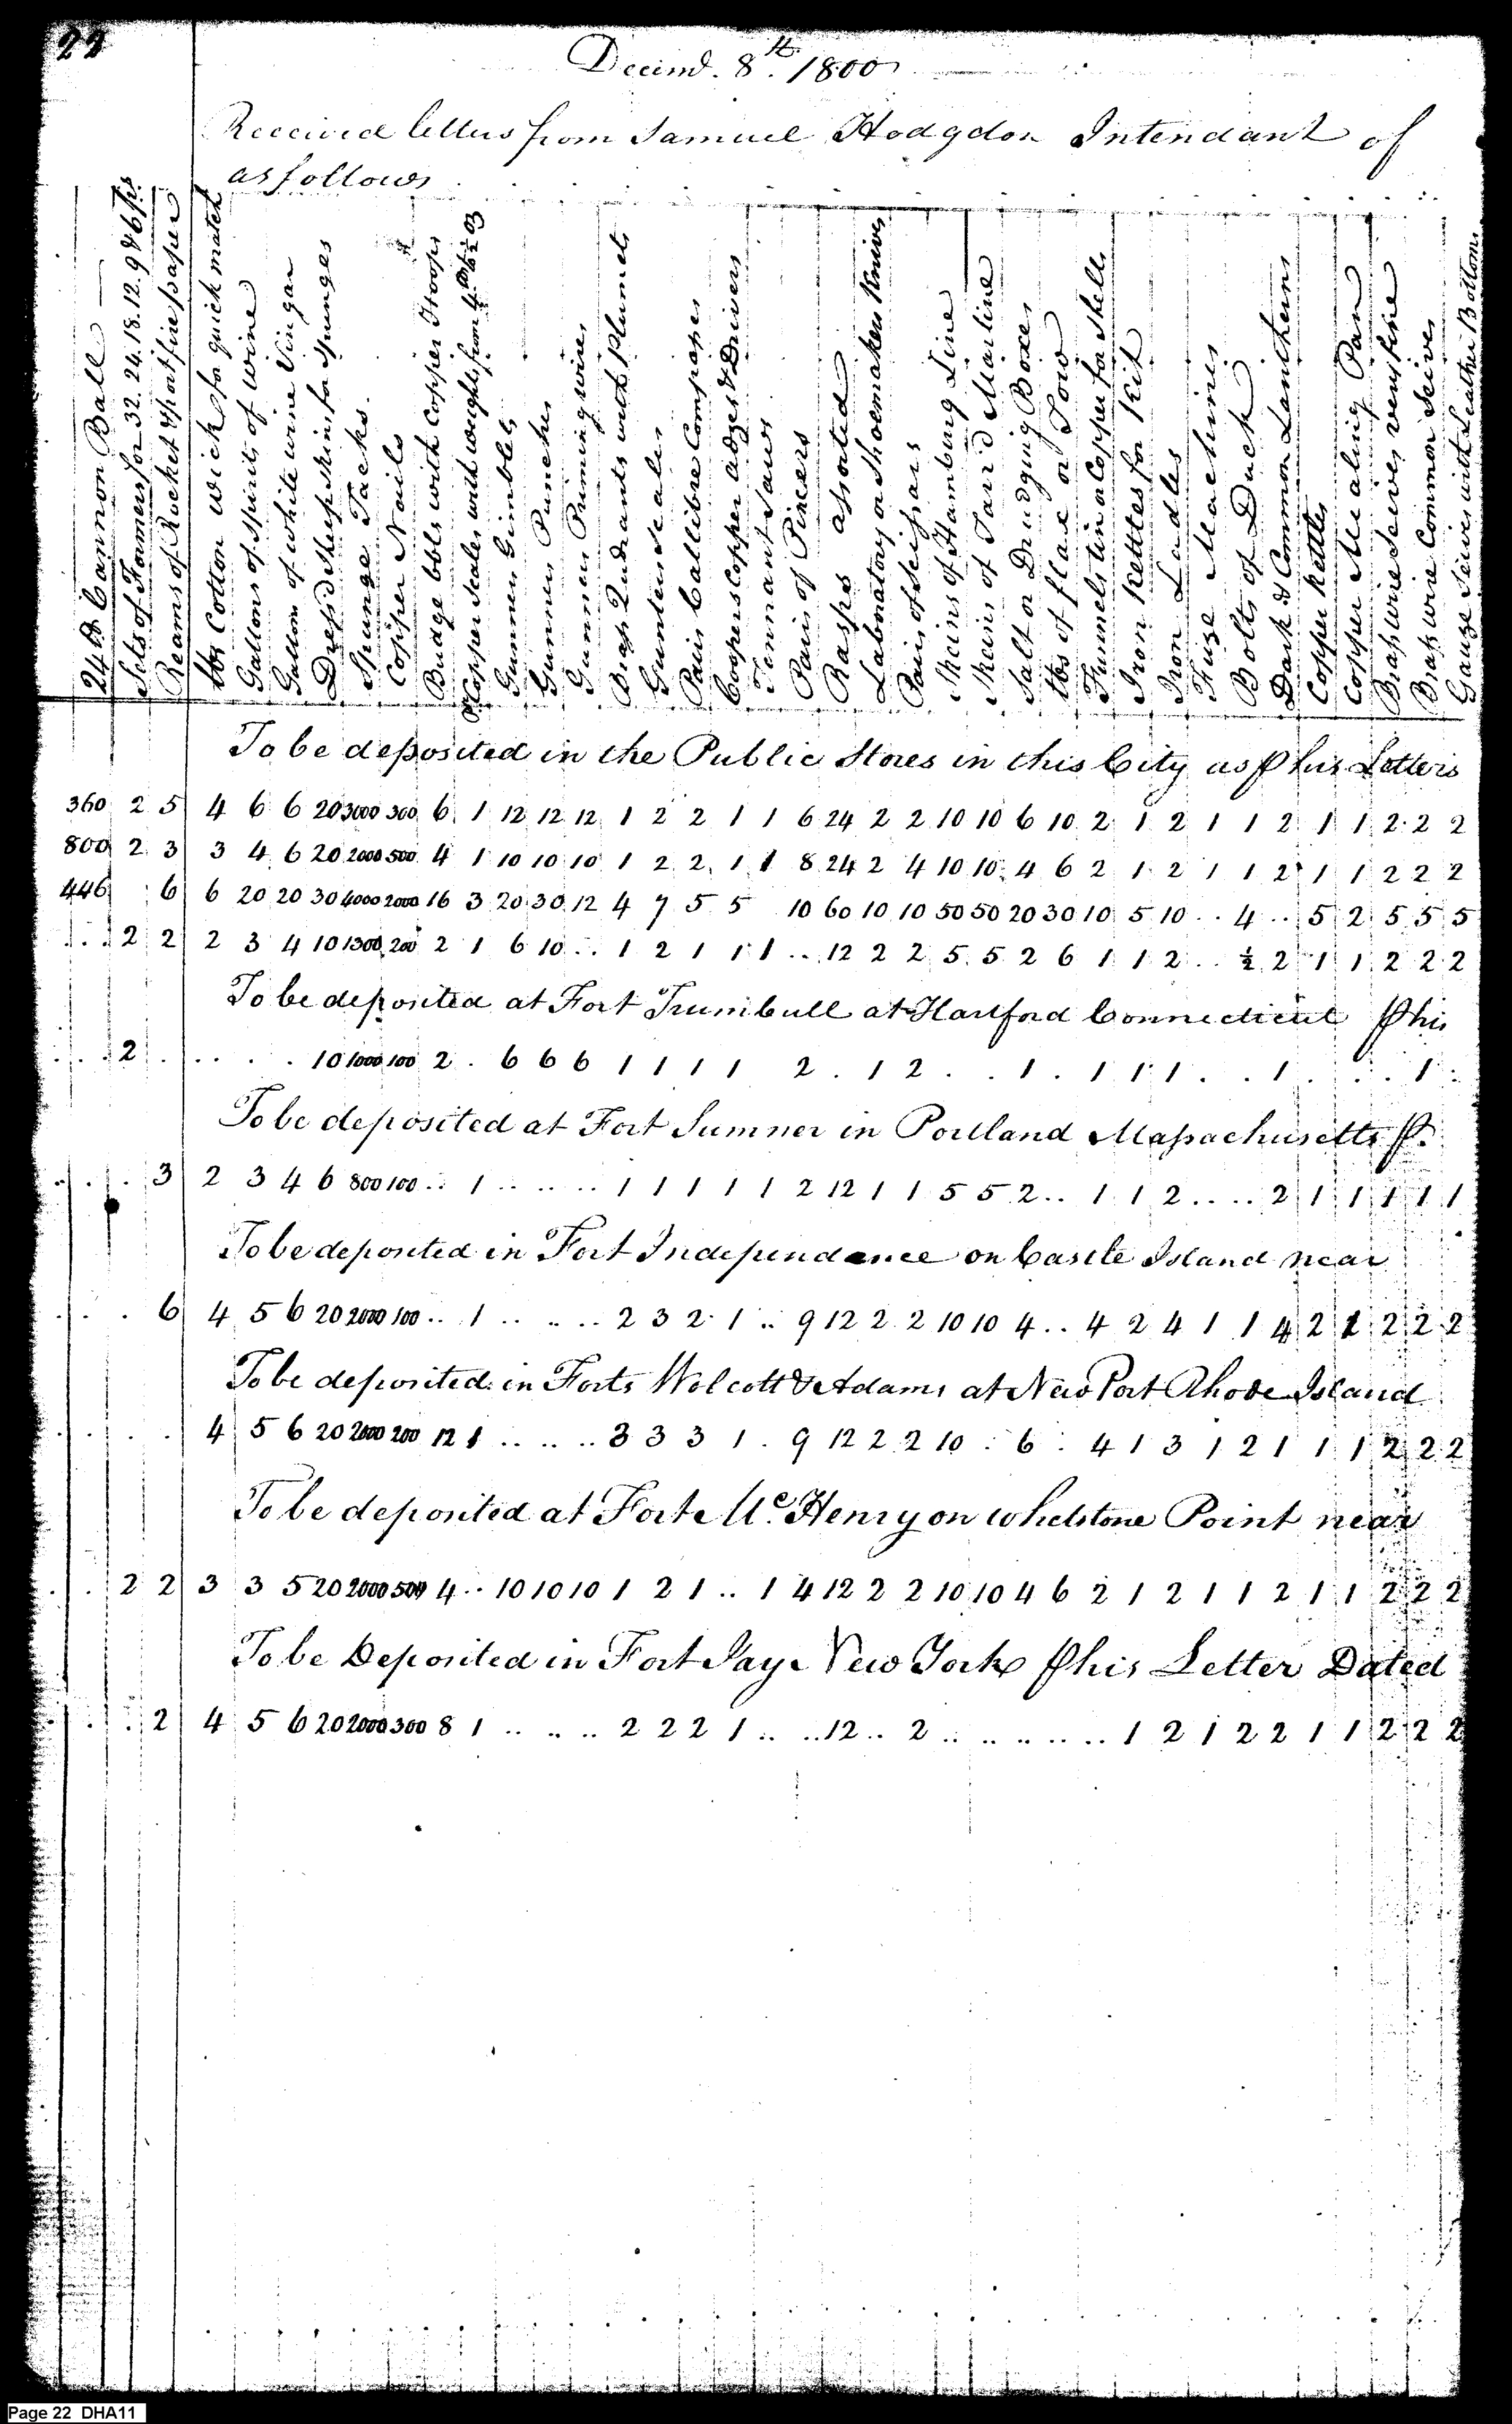 22
Decemd. 8th. 1800
Received letters from Samuel Hodgdon Intendant of
as follows
24 lb Cannon Ball
Sets of Formers for 32. 24. 18. 12. 9 & 6 prs
Reams of Rocket & Portfire paper
lbs Cotton wick for quick match
Gallons of Spirits of wine
Gallons of white wine Vinegar
Dress'd Sheepskins for Spunges
Spunge Tacks.
Copper Nails
Budge bbls with Copper Hoops
Copper Scales with weights from 4 lb to ½ oz
Gunners Gimblets
Gunners Punches
Gunners Priming wires
Brass Qudrants with Plumets
Gunters Scales
Pair Callibre Compasses
Coopers Copper adzes & Drivers
Tennant Saws
Pairs of Pincers
Rasps assorted
Laboratory or Shoemakers Knives
Pairs of Scissars
Skeins of Hambrog Line
Skeins of Tarr'd Marline
Salt or Drudging Boxes
lbs of flax or Tow
Funnels tin or Copper for Shells
Iron Kettles for Kit
Iron Ladles
Fuze Machines
Bolts of Duck
Dark & Common Lanthorns
Copper Kettles
Copper Mealing Pan
Brass wire Seives very fine
Brass wire Common Seives
Gauze Seives with Leather Bottoms
To be deposited in the Public Stores in this City as ⅌ his Letters
360 2 5 4 6 6 20 3000 300 6 1 12 12 12 1 2 2 1 1 6 24 2 2 10 10 6 10 2 1 2 1 1 2 1 1 2 2 2
800 2 3 3 4 6 20 2000 500 4 1 10 10 10 1 2 2 1 1 8 24 2 4 10 10 4 6 2 1 2 1 1 2 1 1 2 2 2
446 6 6 20 20 30 4000 2000 16 3 20 30 12 4 7 5 5 10 60 10 10 50 50 20 30 10 5 10 .. 4 .. 5 2 5 5 5
.. 2 2 2 3 4 10 1300 200 2 1 6 10 .. 1 2 1 1 1 .. 12 2 2 5 5 2 6 1 1 2 .. ½ 2 1 1 2 2 2
To be deposited at Fort Trumbull at Hartford Connecticut ⅌ his
.. 2 . . . . . 10 1000 100 2 . 6 6 6 1 1 1 1 2 . 1 2 . . 1 . 1 1 1 1 . . 1 . . . . 1 .
To be deposited at Fort Sumner in Portland Massachusetts ⅌.
. . 3 2 3 4 6 800 100 .. 1 .. .. .. 1 1 1 1 1 2 12 1 1 5 5 2 .. 1 1 2 .. .. 2 1 1 1 1 1
To be deposited in Fort Independance on Castle Island near
. . 6 4 5 6 20 2000 100 .. 1 .. .. .. 2 3 2 1 .. 9 12 2 2 10 10 4 .. 4 2 4 1 1 4 2 1 2 2 2
To be deposited in Forts Wolcott & Adams at New Port Rhode Island
. . . 4 5 6 20 2000 200 12 1 .. .. .. 3 3 3 1 . 9 12 2 2 10 . 6 . 4 1 3 1 2 1 1 1 2 2 2
To be deposited at Fort Mc.Henry on Whelstone Point near
. 2 2 3 3 5 20 2000 500 4 .. 10 10 10 1 2 1 .. 1 4 12 2 2 10 10 4 6 2 1 2 1 1 2 1 1 2 2 2
To be Deposited in Fort Jay New York ⅌ his Letter Dated
. . 2 4 5 6 20 2000 300 8 1 .. .. .. 2 2 2 1 .. .. 12 .. 2 .. .. .. .. .. 1 2 1 2 2 1 1 2 2 2
Page 22 DHA11